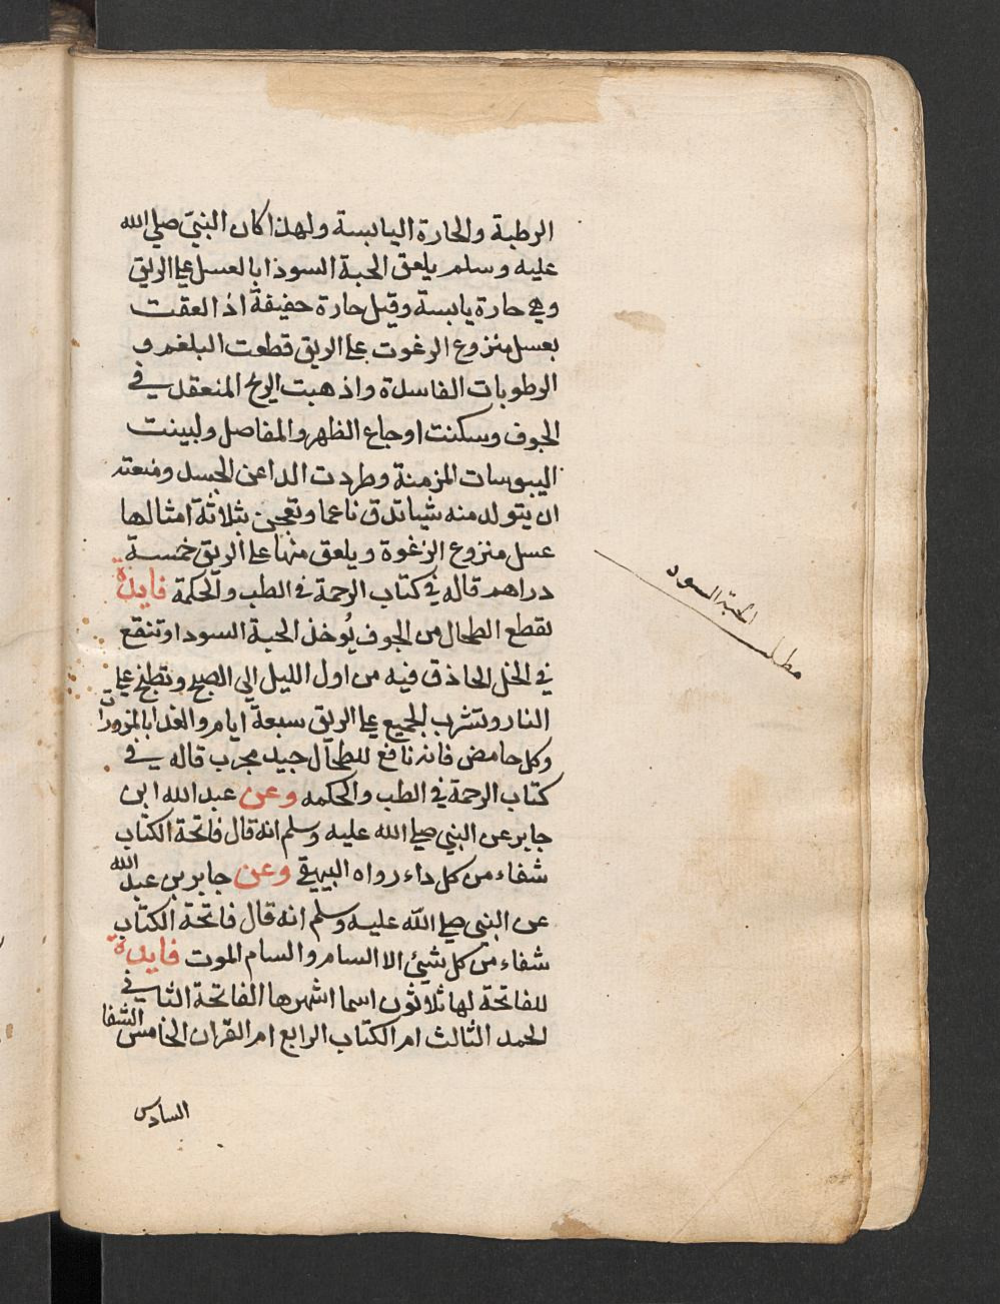 الرطبة والحارة اليابسة ولهذا كان النبيّ صلي الله
عليه وسلم يلعق الحبة السودا بالعسل علي الريق
وهي حارة يابسة وقيل حارة حفيفة اذا لعقت
بعسل منزوع الرغوت علي الريق قطعت البلغم و
الرطوبات الفاسدة واذهبت الريح المنعقد في
الجوف وسكنت اوجاع الظهر والمفاصل ولبينت
اليبوسات المزمنة وطردت الداعن الجسد ومنعته
ان يتولد منه شياتدق ناعما وتعجن بثلاثة امثالها
عسل منزوع الرغوة ويلعق منها علي الريق خمسة
دراهم قاله في كتاب الرحمة في الطب والحكمة فايدة
لقطع الطحال من الجوف يُوخذ الحبة السودا وتنقع
في الخل الحاذق فيه من اول الليل الي الصبح وتطبخ علي
النار وتشرب الجميع علي الريق سبعة ايام والغدا بالمزورات
وكل حامض فانه نافع للطحال جيد مجرب قاله في
كتاب الرحمة في الطب والحكمه وعن عبد الله ابن
جابر عن النبي صلي الله عليه وسلم انه قال فاتحة الكتاب
شفاء من كل داء رواه البيهقي وعن جابر بن عبد الله
عن النبي صلي الله عليه وسلم انه قال فاتحة الكتاب
شفاء من كل شيئ الا السام والسام الموت فايدة
للفاتحة لها ثلاثون اسما اشهرها الفاتحة الثاني
الحمد الثالث ام الكتاب الرابع ام القران الخامس الشفا
السادس
مطلب
الحبة السود